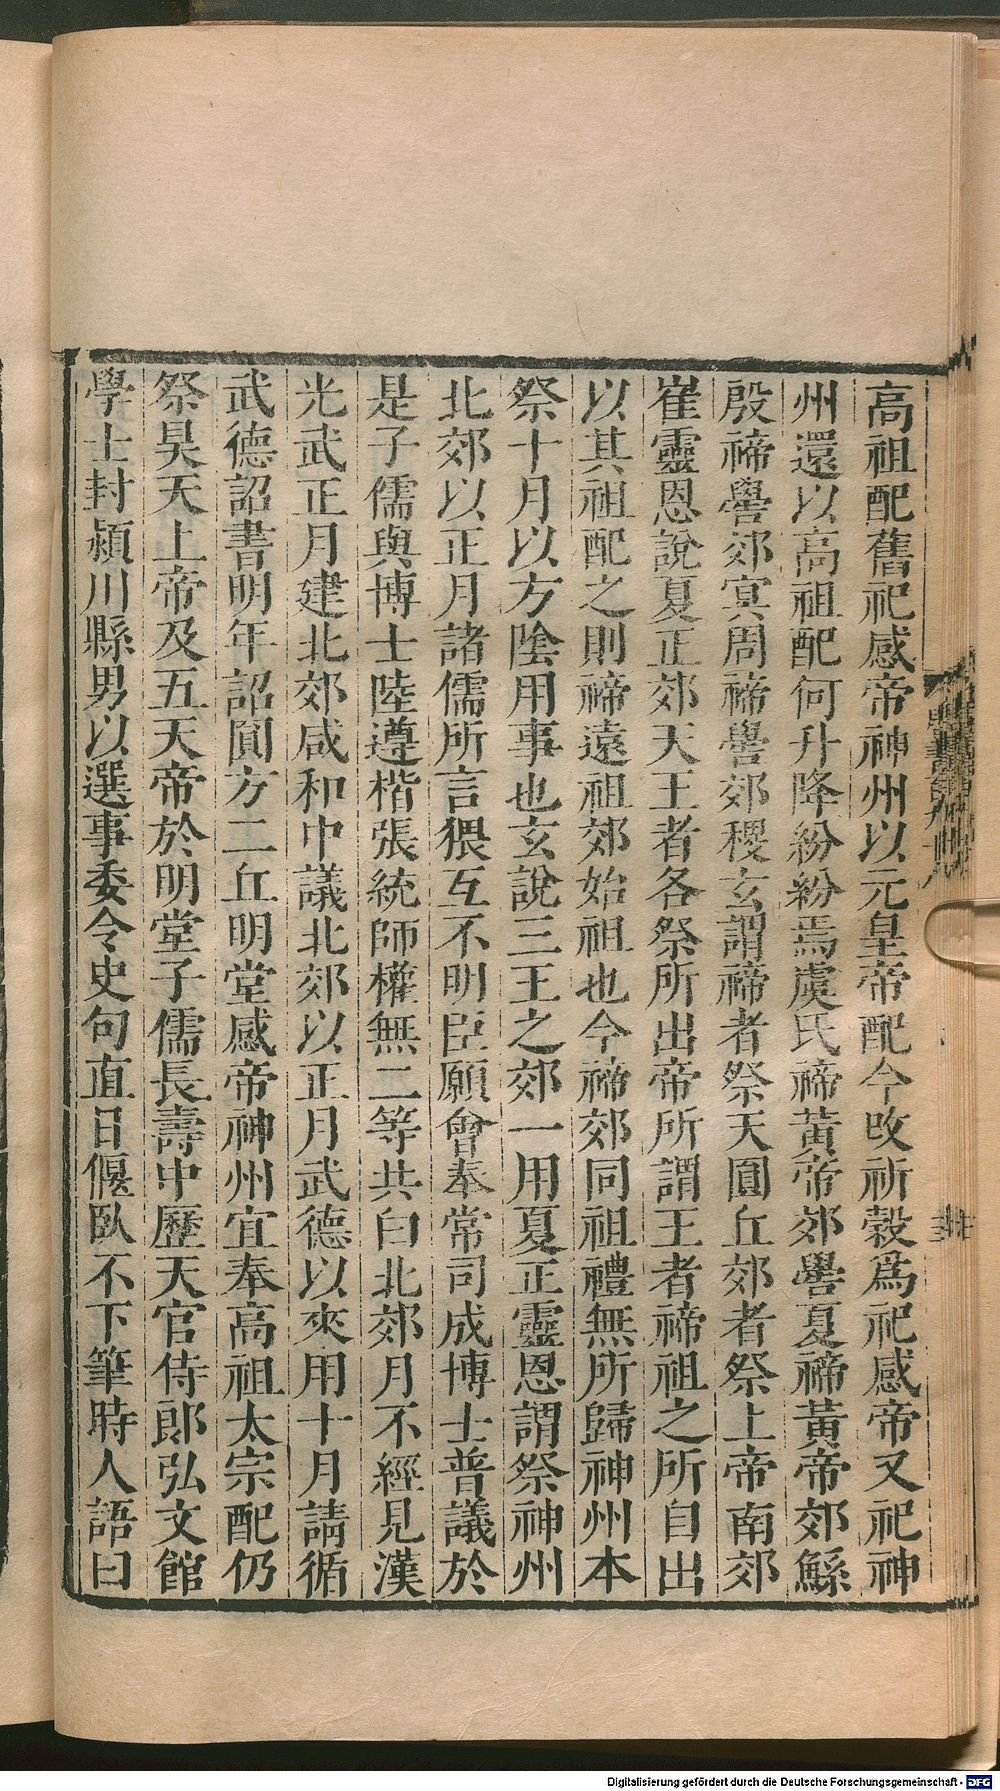 高祖配舊祀感帝神州以元皇帝配今改祈穀爲祀感帝又祀神
州還以高祖配何升降紛紛焉虞氏禘黃帝郊嚳夏禘黃帝郊鯀
殷禘嚳郊冥周禘嚳郊稷玄謂禘者祭天圓丘郊者祭上帝南郊
崔靈恩說夏正郊天王者各祭所出帝所謂王者禘祖之所自出
以其祖配之則禘遠祖郊始祖也今禘郊同祖禮無所歸神州本
祭十月以方陰用事也玄說三王之郊一用夏正靈恩謂祭神州
北郊以正月諸儒所言猥互不明臣願會奉常司成博士普議於
是子儒與博士陸遵楷張統師權無二等共白北郊月不經見漢
光武正月建北郊咸和中議北郊以正月武德以來用十月請循
武德詔書明年詔圓方二丘明堂感帝神州宜奉高祖太宗配仍
祭昊天上帝及五天帝於明堂子儒長壽中歷天官侍郎弘文館
學士封潁川縣男以選事委令史句直日偃臥不下筆時人語曰
Digitalisierung gefördert durch die Deutsche Forschungsgemeinschaft - DFG